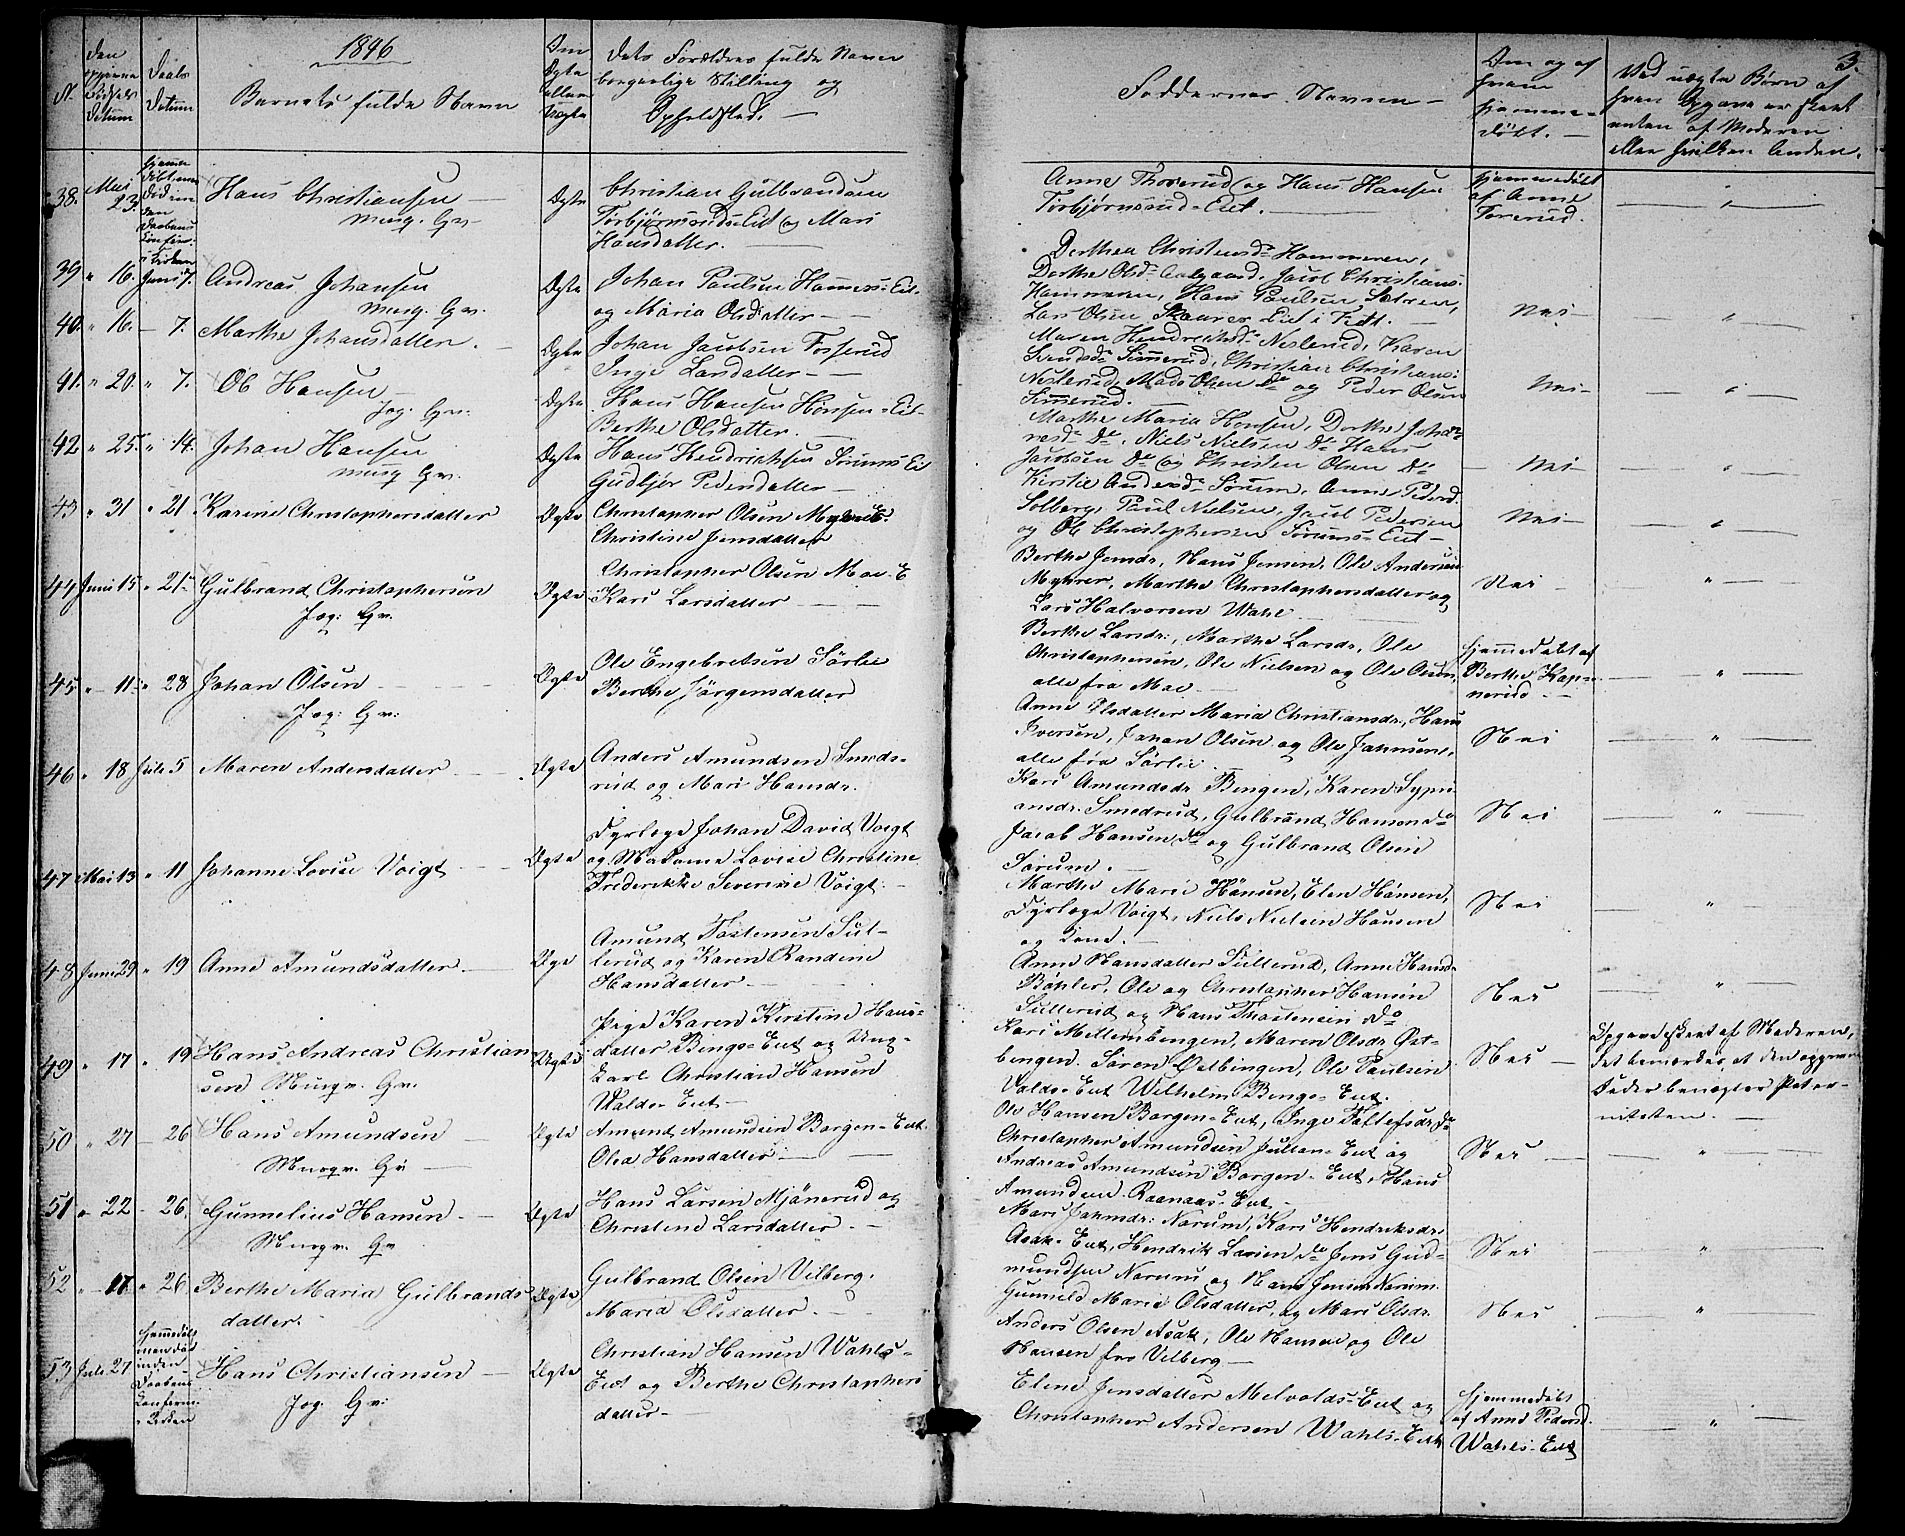 3.
1846
No
Den opgivne Fødsels Datum
Daabs Datum
Barnets fulde Navn
Om Ægte eller Uægte
Dets Forældres fulde Navn
borgerlige Stilling og
Opholdsted. —
Faddernes Navne —
Om og af
hvem
hjemme-
døbt. —
Ved uægte Børn af
hvem Opgave er skeet
enten af Moderen
eller hvilken Anden.
38. Mai 23.
Hans Christiansen —
Ægte
Christian Gulbrandsen
Torbjørnsrud-Eit og Mari
Hansdatter. —
Anne Thorerud og Hans Hansen
Torbjørnsrud-Eiet. —
hjemmedøbt
af Anne
Torerud.
39 " 16. Juni 7.
Andreas Johansen
Ægte
Johan Paulsen Hammers-Eit-
og Maria Olsdatter — —
Dorthea Christensd. Hammeren,
Dorthe Olsd. Aalgaard, Jacob Christians.
Hammeren, Hans Paulsen Sætren,
Lars Olsen Skaarer Eiet i Fedt. —
Nei —
40. " 16. — 7.
Marthe Johansdatter. —
Ægte
Johan Jacobsen Fosserud
Inge Larsdatter — —
Maren Hendrichsd. Neslerud, Karen
Simerud, Christian Christians:
Neslerud, Mads Olsen Do og Peder Olsen
Simerud. —
Nei —
41. " 20. " 7.
Ole Hansen —
Jog. Gv.
Ægte
Hans Hansen Hønsen-Eit-
Berthe Olsdatter. —
Marthe Maria Hønsen, Dorthe Joha-
nesd. Do, Niels Nielsen Do Hans
Jacobsen Do og Christen Olsen Do
— Nei —
42 " 25. " 14.
Johan Hansen
Ægte
Hans Hendrichsen Sørums Eit
Gudbjør Pedersdatter —
Kirstie Andersd. Sørum, Anne Pedersd.
Solberg, Paul Nielsen, Jacob Pedersen
og Ole Christophersen Sørums-Eiet —
Nei —
43 " 31 " 21
Karine Christophersdatter
Ægte
Christopher Olsen Myhrer.
Christine Jensdatter
Berthe Jensdr, Hans Jensen, Ole Andersen
Myhrer, Marthe Christophersdatter og
Lars Halvorsen Wahl
Nei —
44 Juni 15 " 21
Gulbrand Christophersen
Jog: Gv.
Ægte
Christopher Olsen Moe-E
Kari Larsdatter — —
Berthe Larsdr., Marthe Larsdr, Ole
Christophersen, Ole Nielsen og Ole Olsen,
alle fra Moe. —
45 " 11 " 28
Johan Olsen —
Jog: Gv:
Ægte
Ole Engebretsen Sørlie
Berthe Jørgensdatter
hjemmedøbt af
Berthe Kop-
nerud —
Anne Olsdatter Maria Christiansdr., Hans
Iversen, Johan Olsen og Ole Johnsen,
alle fra Sørlie. —
Nei
46 " 18 Juli 5
Maren Andersdatter —
Ægte
Anders Amundsen Smeds-
rud og Mari Hansdr.
Kari Amundsdr Bingen, Karen Sypri-
ansdr. Smedsrud, Gulbrand Hansen do
Jacob Hansen do og Gulbrand Olsen
Sørum. —
Nei
47 Mai 13 " 11
Johanne Lovise Voigt —
Ægte
Dyrlæge Johan David Voigt
og Madame Lovise Christine
Frederikke Severine Voigt. —
Marthe Marie Hønsen, Elen Hønsen,
Dyrlæge Voigt, Niels Nielsen Hønsen
og Kone. —
Nei
48 Juni 29 " 19
Anne Amundsdatter —
Amund Tostensen Sul-
lerud og Karen Randine
Hansdatter —
Anne Hansdatter Sullerud, Anne Hansdr
Bøhler, Ole og Christopher Hansen
Sullerud og Hans Thostensen do
Nei
49 " 17 " 19
Hans Andreas Christian
sen
Uægte
Pige Karen Kirstine Hans-
datter Binge-Eiet og Ung-
karl Christian Hansen
Valde-Eiet —
Kari Mellembengen, Maren Olsdr Øst-
bengen. Søren Østbingen, Ole Paulsen
Valde-Eiet Wilhelm Binge-Eiet.
Nei —
Opgave skeet af Moderen,
det bemærkes, at den opgivne
Fader benægter Pater-
niteten. —
50 " 27 — 26
Hans Amundsen —
Ægte
Amund Amundsen Borgen-Eiet.
Olea Hansdatter — —
Ole Hansen Borgen-Eiet, Inge Tollefsdr do
Christopher Amundsen Julsen-Eiet og
Andreas Amundsen Borgen-Eiet, Hans
Amundsen Raanaas-Eiet —
Nei —
51 " 22 — 26.
Gunnelius Hansen. —
Ægte
Hans Larsen Mjønerud og
Christine Larsdatter. —
Mari Johnsdr: Norum, Kari Hendriksdr:
Asak-Eiet, Hendrik Larsen do Jens Gud-
mundsen Norum og Hans Jensen Norum.
Nei
52 " 17 " 26
Berthe Maria Gulbrands
datter.
Ægte
Gulbrand Olsen Vilberg.
Maria Olsdatter. —
Gunnild Marie Olsdatter, og Mari Olsdr.
Anders Olsen Asak, Ole Hansen og Ole
Hansen fra Vilberg —
Nei
53 Juli 27
Hans Christiansen —
Jog. Gv:
Ægte
Christian Hansen Wahls-
Eiet og Berthe Christophers
datter —
Elene Jensdatter Melvolds-Eiet og
Christopher Andersen Wahls-Eiet
hjemmedøbt
af Anne Pedersd.
Wahls-Eiet